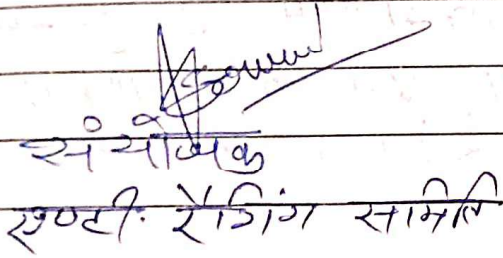 संयोजक
एण्टी. रैगिंग समिति